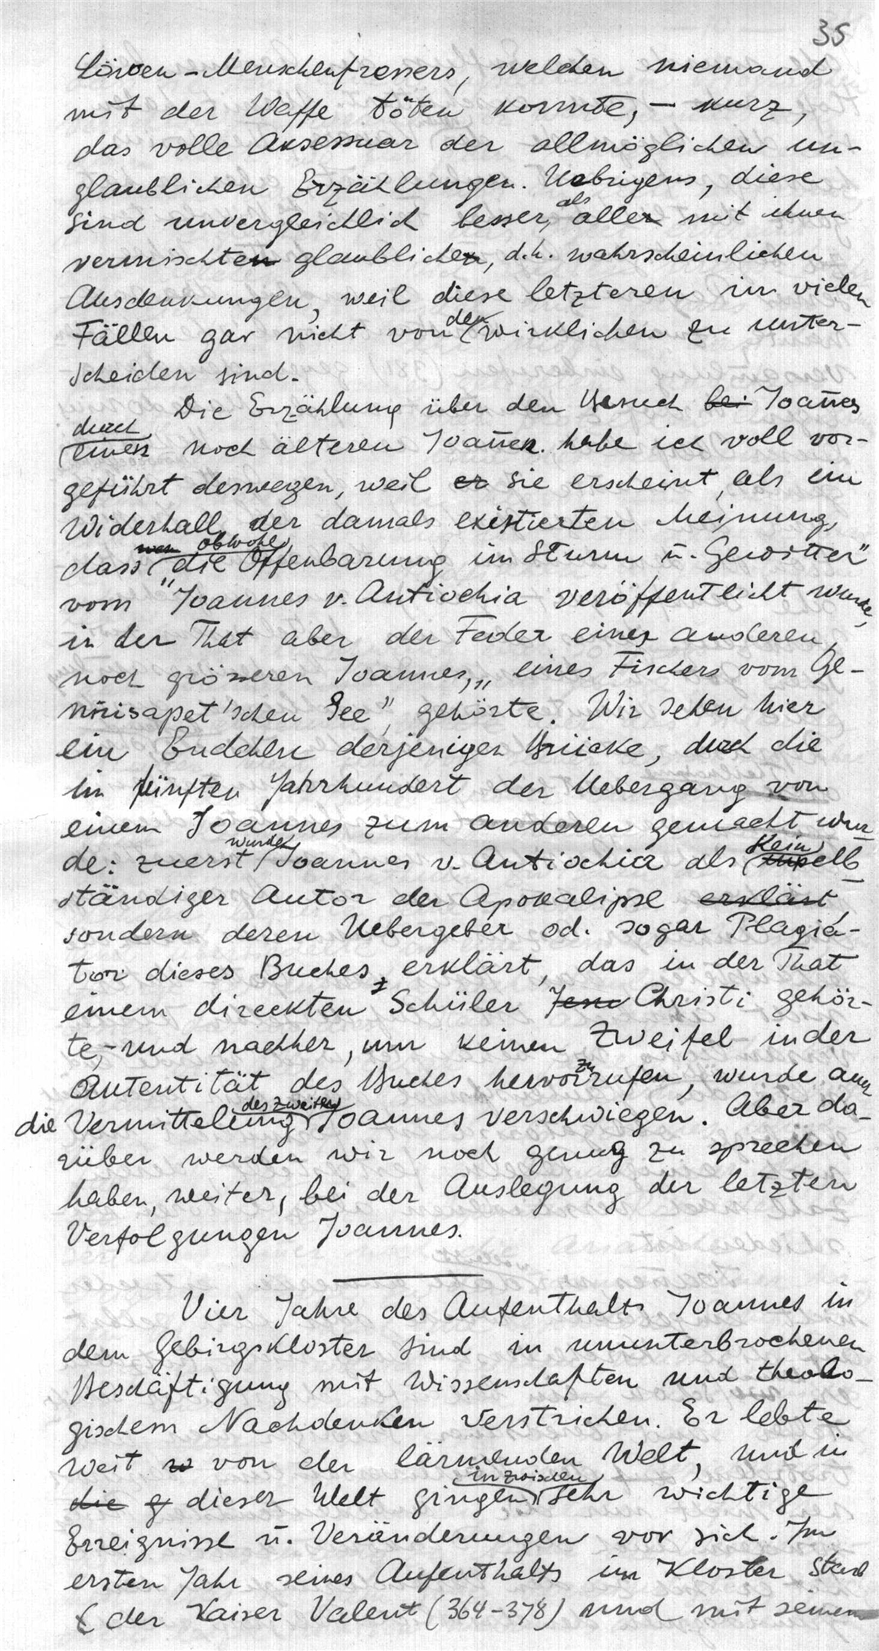 35
Löwen-Menschenfressers, welchen niemand
mit der Waffe töten konnte, – kurz,
das volle Aksessuar der allmöglichen un-
glaublichen Erzählungen. Uebrigens, diese
sind unvergleichlich besser, als aller mit ihnen
vermischten glaublichen, d.h. wahrscheinlichen
Ausdenkungen, weil diese letzteren in vielen
Fällen gar nicht von den wirklichen zu unter-
scheiden sind.
Die Erzählung über den Besuch bei Joannes
durch einen noch älteren Joannen habe ich voll vor-
geführt deswegen, weil er sie erscheint, als ein
Widerhall der damals existierten Meinung,
dass obwohl die "Offenbarung im Sturm u. Gewitter"
vom Joannes v. Antiochia veröffentlicht wurde,
in der That aber der Feder eines anderen,
noch grösseren Joannes, „eines Fischers vom Ge-
nnisapet'schen See", gehörte. Wir sehen hier
ein Endchen derjenigen Brücke, durch die
im fünften Jahrhundert der Uebergang von
einem Joannes zum anderen gemacht wur
de: zuerst wurde Joannes v. Antiochia als kein selb
ständiger Autor der Apokalipse erklärt,
sondern deren Uebergeber od. sogar Plagia-
tor dieses Buches erklärt, das in der That
einem direckten Schüler Jesu Christi gehör-
te, – und nachher, um keinen Zweifel in der
Autentität des Buches hervorzurufen, wurde auch
die Vermittelung des zweiten Joannes verschwiegen. Aber da-
rüber werden wir noch genug zu sprechen
haben, weiter, bei der Auslegung der letzten
Verfolgungen Joannes.
Vier Jahre des Aufenthalts Joannes in
dem Gebirgskloster sind in ununterbrochenen
Beschäftigung mit Wissenschaften und theolo-
gischem Nachdenken verstrichen. Er lebte
weit w von der lärmenden Welt, und in
die g dieser Welt gingen inzwischen sehr wichtige
Erreignisse u. Veränderungen vor sich. Im
ersten Jahr seines Aufenthalts im Kloster starb
der Kaiser Valent (364-378) und mit seinem